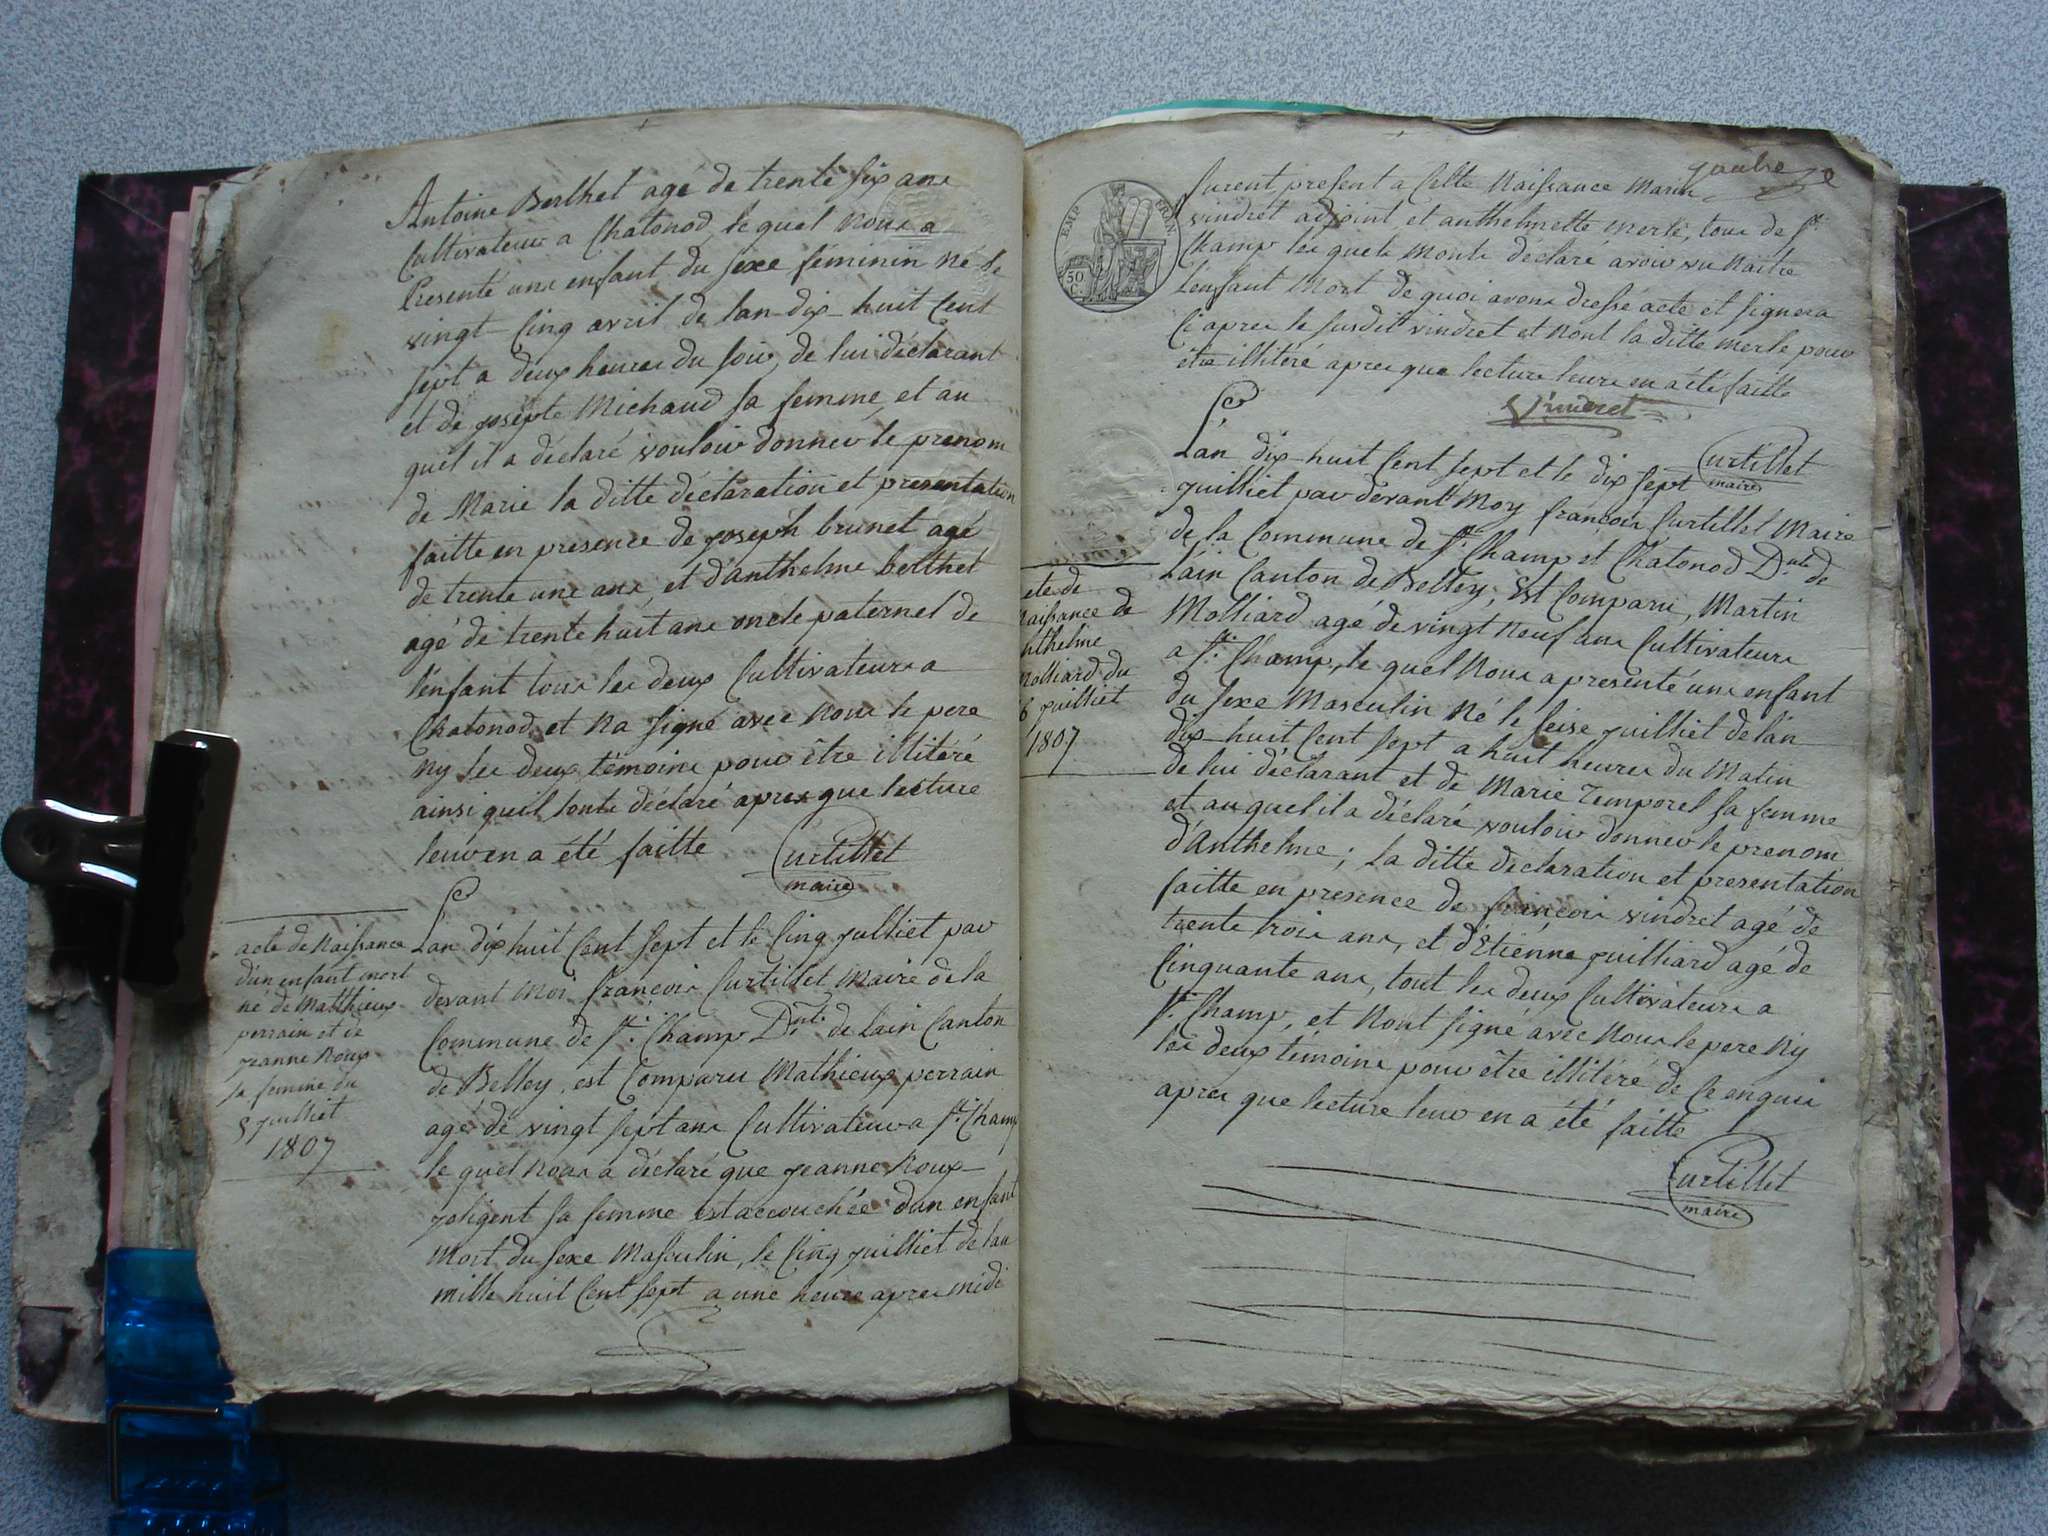 Antoine Berthet agé de trente six ans
Cultivateur a Chatonod le quel nous a
Presenté une enfant du sexe féminin né le
vingt-cinq avril de lan dix-huit cent
sept a deux heures du soir, de lui déclarant
et de josepte Michaud sa femme, et au
quel il a déclaré vouloir donner le prenom
de Marie la ditte déclaration et présentation
faitte en presence de joseph brunet agé
de trente uns ans, et d'anthelme berthet
agé de trente huit ans oncle paternel de
l'enfant tous les deux Cultivateurs a
Chatonod, et na signé avec nous le pere
ny les deux témoins pour être illitéré
ainsi quil lonts déclaré apres que lecture
leur en a été faitte
Curtillet
maire
acte de Naissance
d'un enfant mort
né de Matthieux
perrain et de
jeanne Roux
sa femme du
5 juilliet
1807
Lan dix huit cent sept et le cinq julliet par
devant moi françois Curtillet Maire de la
Commune de st. Champ Dnt. de lain Canton
de Belley, est Comparu Mathieux perrain
agé de vingt sept ans Cultivateur a st. Champ
le quel nous a déclaré que jeanne Roux
joligent sa femme est accouchée d'un enfant
mort du sexe Masculin, le cinq juilliet de lan
mille huit cent sept a une heure apres midi
furent present a cette Naissance Marin
vindret adjoint et anthelmette merle, tous de st.
Champ les quels Monts déclaré avoir vu Naitre
L'enfant Mort de quoi avons dressé acte et signera
Ci apres le susdit vindret et Nont la ditte merle pour
etre illitéré apres que lecture leurs en a été faitte
Vindret
Curtillet
maire
L'an dix-huit cent sept et le dix sept
juilliet par devant Moy françois Curtillet Maire
de la Commune de st. Champ et Chatonod Dnt. de
Lain Canton de Belley, Est Comparu, Martin
Molliard agé de vingt Neuf ans Cultivateurs
a st. Champ, le quel Nous a presenté uns enfant
du sexe Masculin Né le seise juilliet de l'an
dix-huit cent sept a huit heures du Matin
de lui déclarant et de Marie Temporel sa femme
et au quel il a déclaré vouloir donner le prenom
d'Anthelme; La ditte déclaration et presentation
faitte en presence de françois vindret agé de
trente trois ans, et d'Etienne juilliard agé de
Cinquante ans, tout les deux Cultivateurs a
st. Champ, et Nont signé avec Nous le pere Ny
les deux témoins pour être illitéré de Ce enquis
apres que lecture leur en a été faitte
Curtillet
maire
ete de
Naissance de
nthelme
Molliard du
6 juilliet
1807
EMP
50
C.